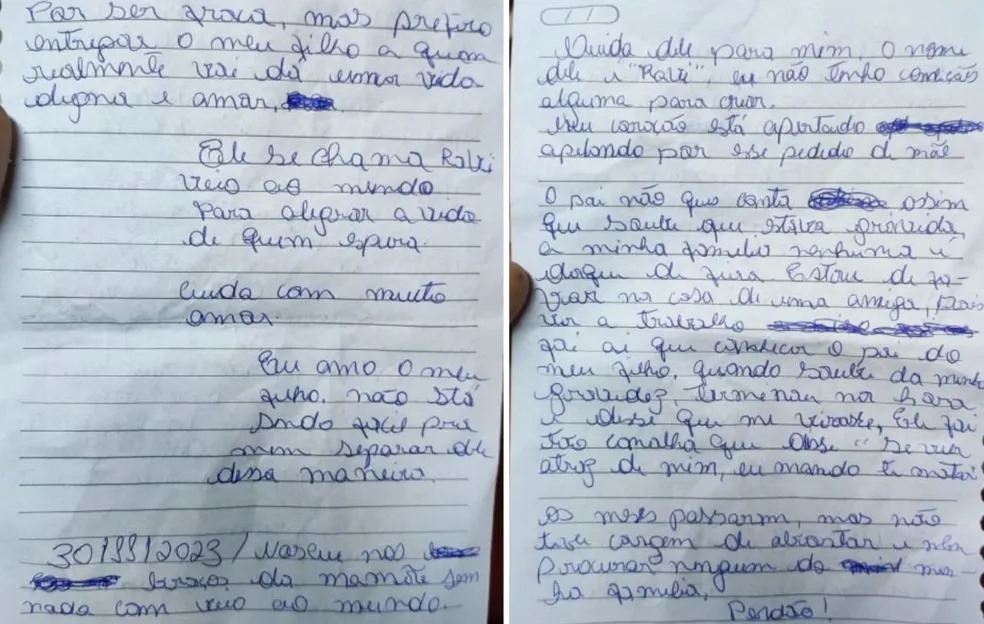 Por ser fraca, mas prefiro
entregar o meu filho a quem
realmente vai dá uma vida
digna e amar.
Ele se chama Ravi
veio ao mundo
para alegrar a vida
de quem espera.
Cuida com muito
amor.
Eu amo o meu
filho. não stá
sndo facil pra
mim separar dele
dessa maneira.
30/11/2023/ Nasceu nos
braços da mamãe sem
nada com veio ao mundo.
Cuida dele para mim, o nome
dele é "Ravi", eu não tenho condições
alguma para criar.
Meu coração está apertando
apelando por esse pedido de mãe
O pai não quis conta assim
que soube que estava grávida,
a minha familia nenhuma é
daqui de Jura Estou de fa-
vor na casa de uma amiga, pois
vir a trabalho
foi ai que conhecir o pai do
meu filho. quando soube da minha
gravidez, terminou na hora
e disse que me virasse, Ele foi
tão canalha que disse "Se vir
atrás de mim, eu mando te matar
Os meses passarm, mas não
tive coragem de abortar e nem
procurar ninguem da min-
ha familia,
Perdão!